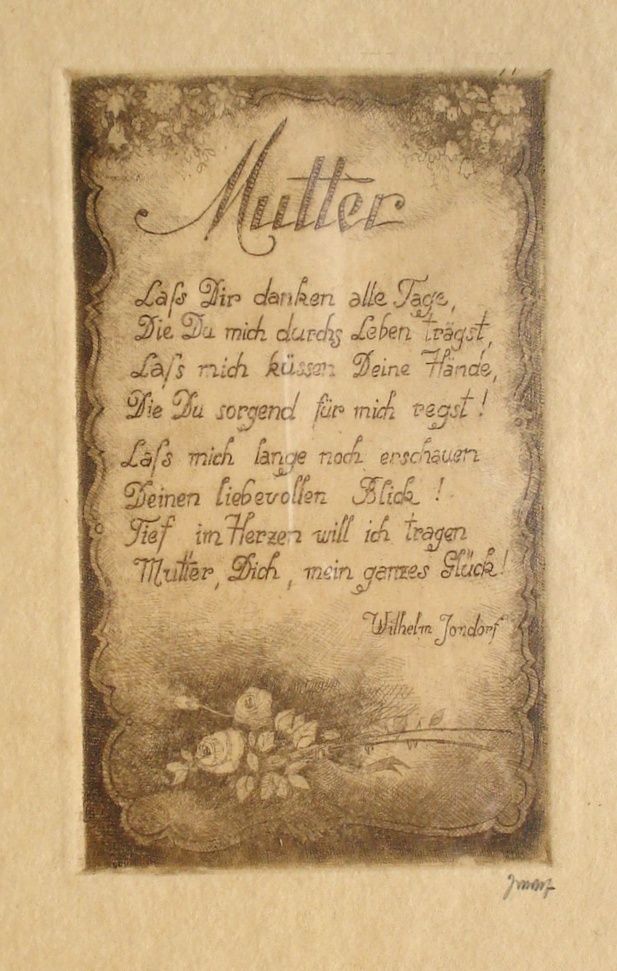 Mutter
Laſs Dir danken alle Tage,
Die Du mich durchs Leben trägst,
Laſs mich küssen Deine Hände,
Die Du sorgend für mich regst!
Laſs mich lange noch erschauen
Deinen liebevollen Blick!
Tief im Herzen will ich tragen
Mutter, Dich, mein ganzes Glück!
Wilhelm Jondorf